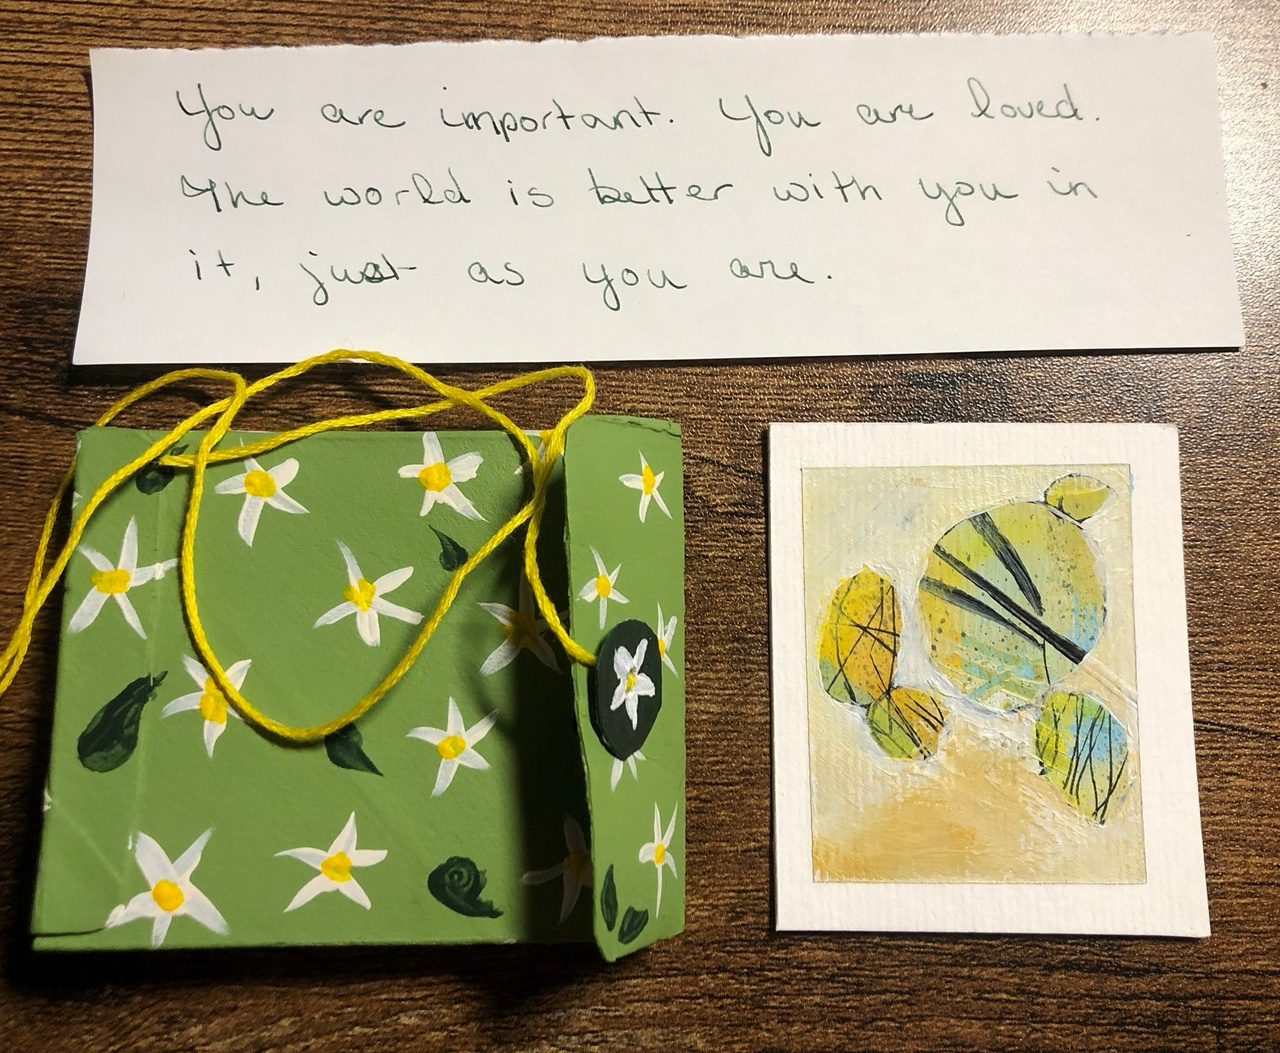 You are important. You are loved.
The world is better with you in
it, just as you are.